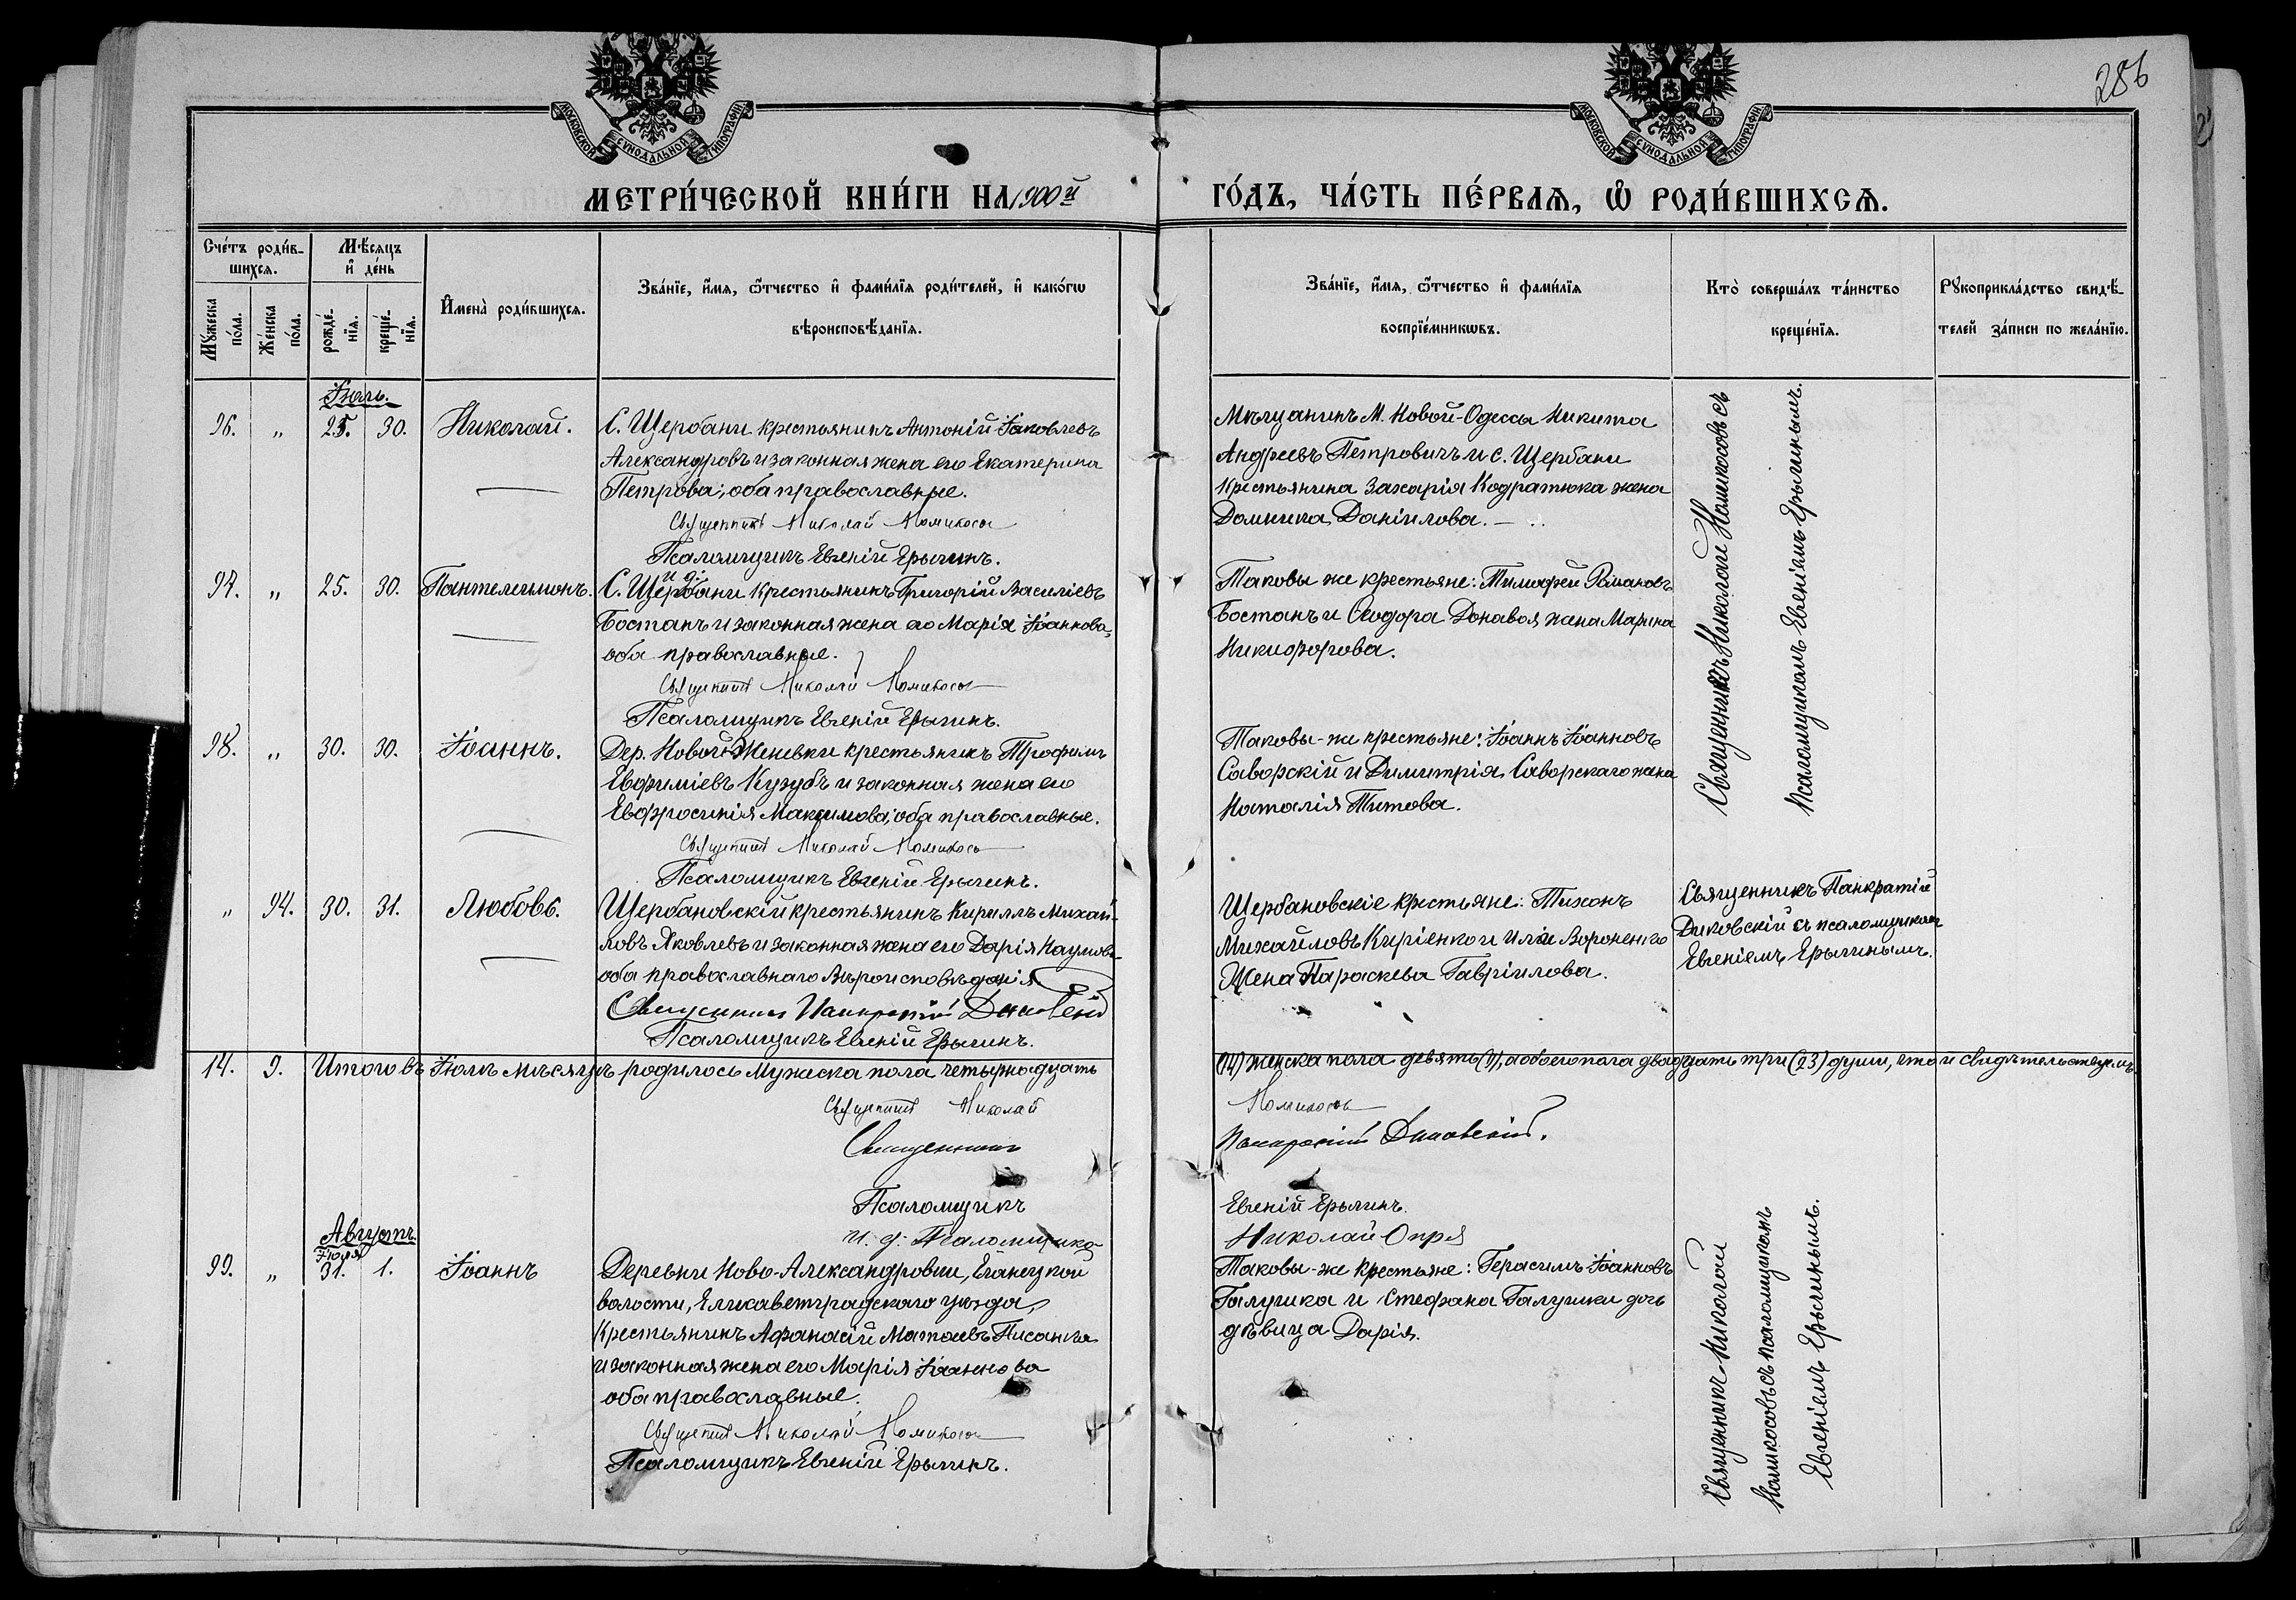 286
МОСКОВСКОЙ СѴНОДАЛЬНОЙ ТИПОГРАФІИ
МОСКОВСКОЙ СѴНОДАЛЬНОЙ ТИПОГРАФІИ
МЕТРИ́ЧЕСКОЙ КНИ́ГИ НА 1900й ГО́ДЪ, ЧА́СТЬ ПЕ́РВАѦ, Ѡ҆ РОДИ́ВШИХСѦ.
Сче́тъ роди́в-
шихсѧ.
Мꙋ́жеска по́ла.
Же́нска по́ла.
Мѣ́сѧцъ
и҆ де́нь
рожде́-нїѧ.
креще́-нїѧ.
И҆мена̀ роди́вшихсѧ.
Зва́нїе, и҆́мѧ, ѻ҆́тчество и҆ фами́лїѧ роди́телей, и҆ како́гѡ
вѣроисповѣ́данїѧ.
Зва́нїе, и҆́мѧ, ѻ҆́тчество и҆ фами́лїѧ
воспрїе́мникѡвъ.
Кто̀ соверша́лъ та́инство
креще́нїѧ.
Рꙋкоприкла́дство свидѣ́-
телей за́писи по жела́нїю.
Іюль.
96. „ 25. 30. Николай. С. Щербани крестьянинъ Антоній Іаковлевъ
Александровъ и законная жена его Екатерина
Петрова; оба православные.
Священникъ Николай
Псаломщикъ Евгеній Ерыгинъ.
Мѣщанинъ М. Новой-Одессы Никита
Андреевъ Петровичъ и с. Щербани
крестьянина Захарія Кодратюка жена
Домника Даніилова.
Священникъ Николай съ
псаломщикомъ Евгеніемъ Ерыгинымъ.
97. „ 25. 30. Пантелеимонъ. С. Щербани крестьянинъ Григорій Василіевъ
Бостанъ и законная жена его Марія Іоаннова,
оба православные.
Священникъ Николай
Псаломщикъ Евгеній Ерыгинъ.
Таковы же крестьяне: Тимофей Романовъ
Бостанъ и Ѳеодора жена Марина
Никифорова.
98. „ 30. 30. Іоаннъ. Дер. Новой крестьянинъ Трофимъ
Евфиміевъ Кузубъ и законная жена его
Евфросинія Максимова; оба православные.
Священникъ Николай
Псаломщикъ Евгеній Ерыгинъ.
Таковы-же крестьяне: Іоаннъ Іоанновъ
Саворскій и Димитрія Саворскаго жена
Наталія Титова.
„ 94. 30. 31. Любовь. Щербановскій крестьянинъ Кириллъ Михай-
ловъ Яковлевъ и законная жена его Дарія Наумова
оба православнаго вѣроисповѣданія
Священникъ Панкратій Диковскій
Псаломщикъ Евгеній Ерыгинъ.
Щербановскіе крестьяне: Тихонъ
Михайловъ Киріенко и Иліи Вороненко
жена Параскева Гавріилова.
Священникъ Панкратій
Диковскій съ псаломщикомъ
Евгеніемъ Ерыгинымъ.
14. 9. Итого въ Іюлѣ мѣсяцѣ родилось мужеска пола четырнадцать (14) женска пола девять (9), а обоего пола двадцать три (23) души, что и свидѣтельствуемъ.
Священникъ Николай
Священникъ Панкратій Диковскій.
Псаломщикъ Евгеній Ерыгинъ.
и. д. Псаломщика Николай Опря
Августъ.
Іюля
99. „ 31. 1. Іоаннъ Деревни Ново-Александровки, Еланецкой
волости, Елисаветградскаго уѣзда,
крестьянинъ Афанасій Матѳеевъ Писанка
и законная жена его Марія Іоаннова
оба православные.
Священникъ Николай
Псаломщикъ Евгеній Ерыгинъ.
Таковы-же крестьяне: Герасимъ Іоанновъ
Галушка и Стефана Галушки дочь
дѣвица Дарія.
Священникъ Николай
съ псаломщикомъ
Евгеніемъ Ерыгинымъ.